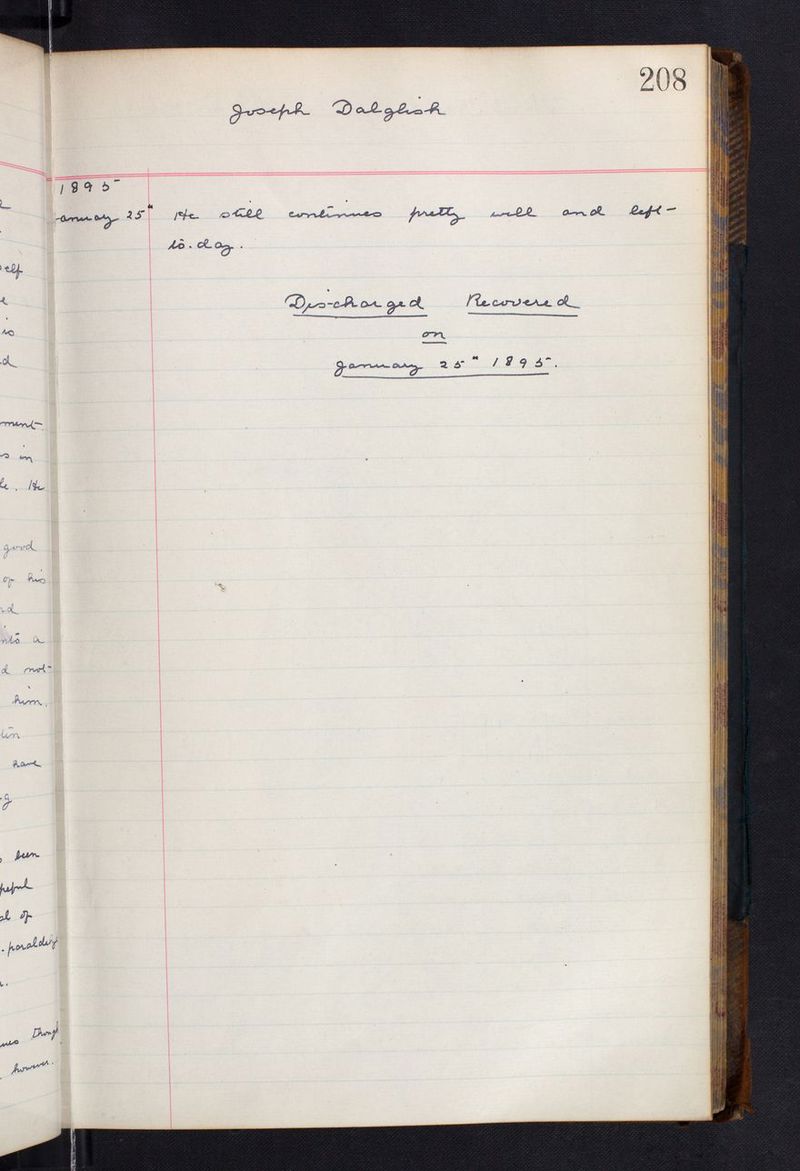 208
Joseph Dalglish
1895
anuary 25" He still continues pretty well and left
to.day.
Discharged Recovered
on
January 25" 1895.
elf
is
d
ment.
s in
le. He
good
of his
nd
into a
d not
him.
tin
have
g
been
peful
al of
paraldehy
though
however.